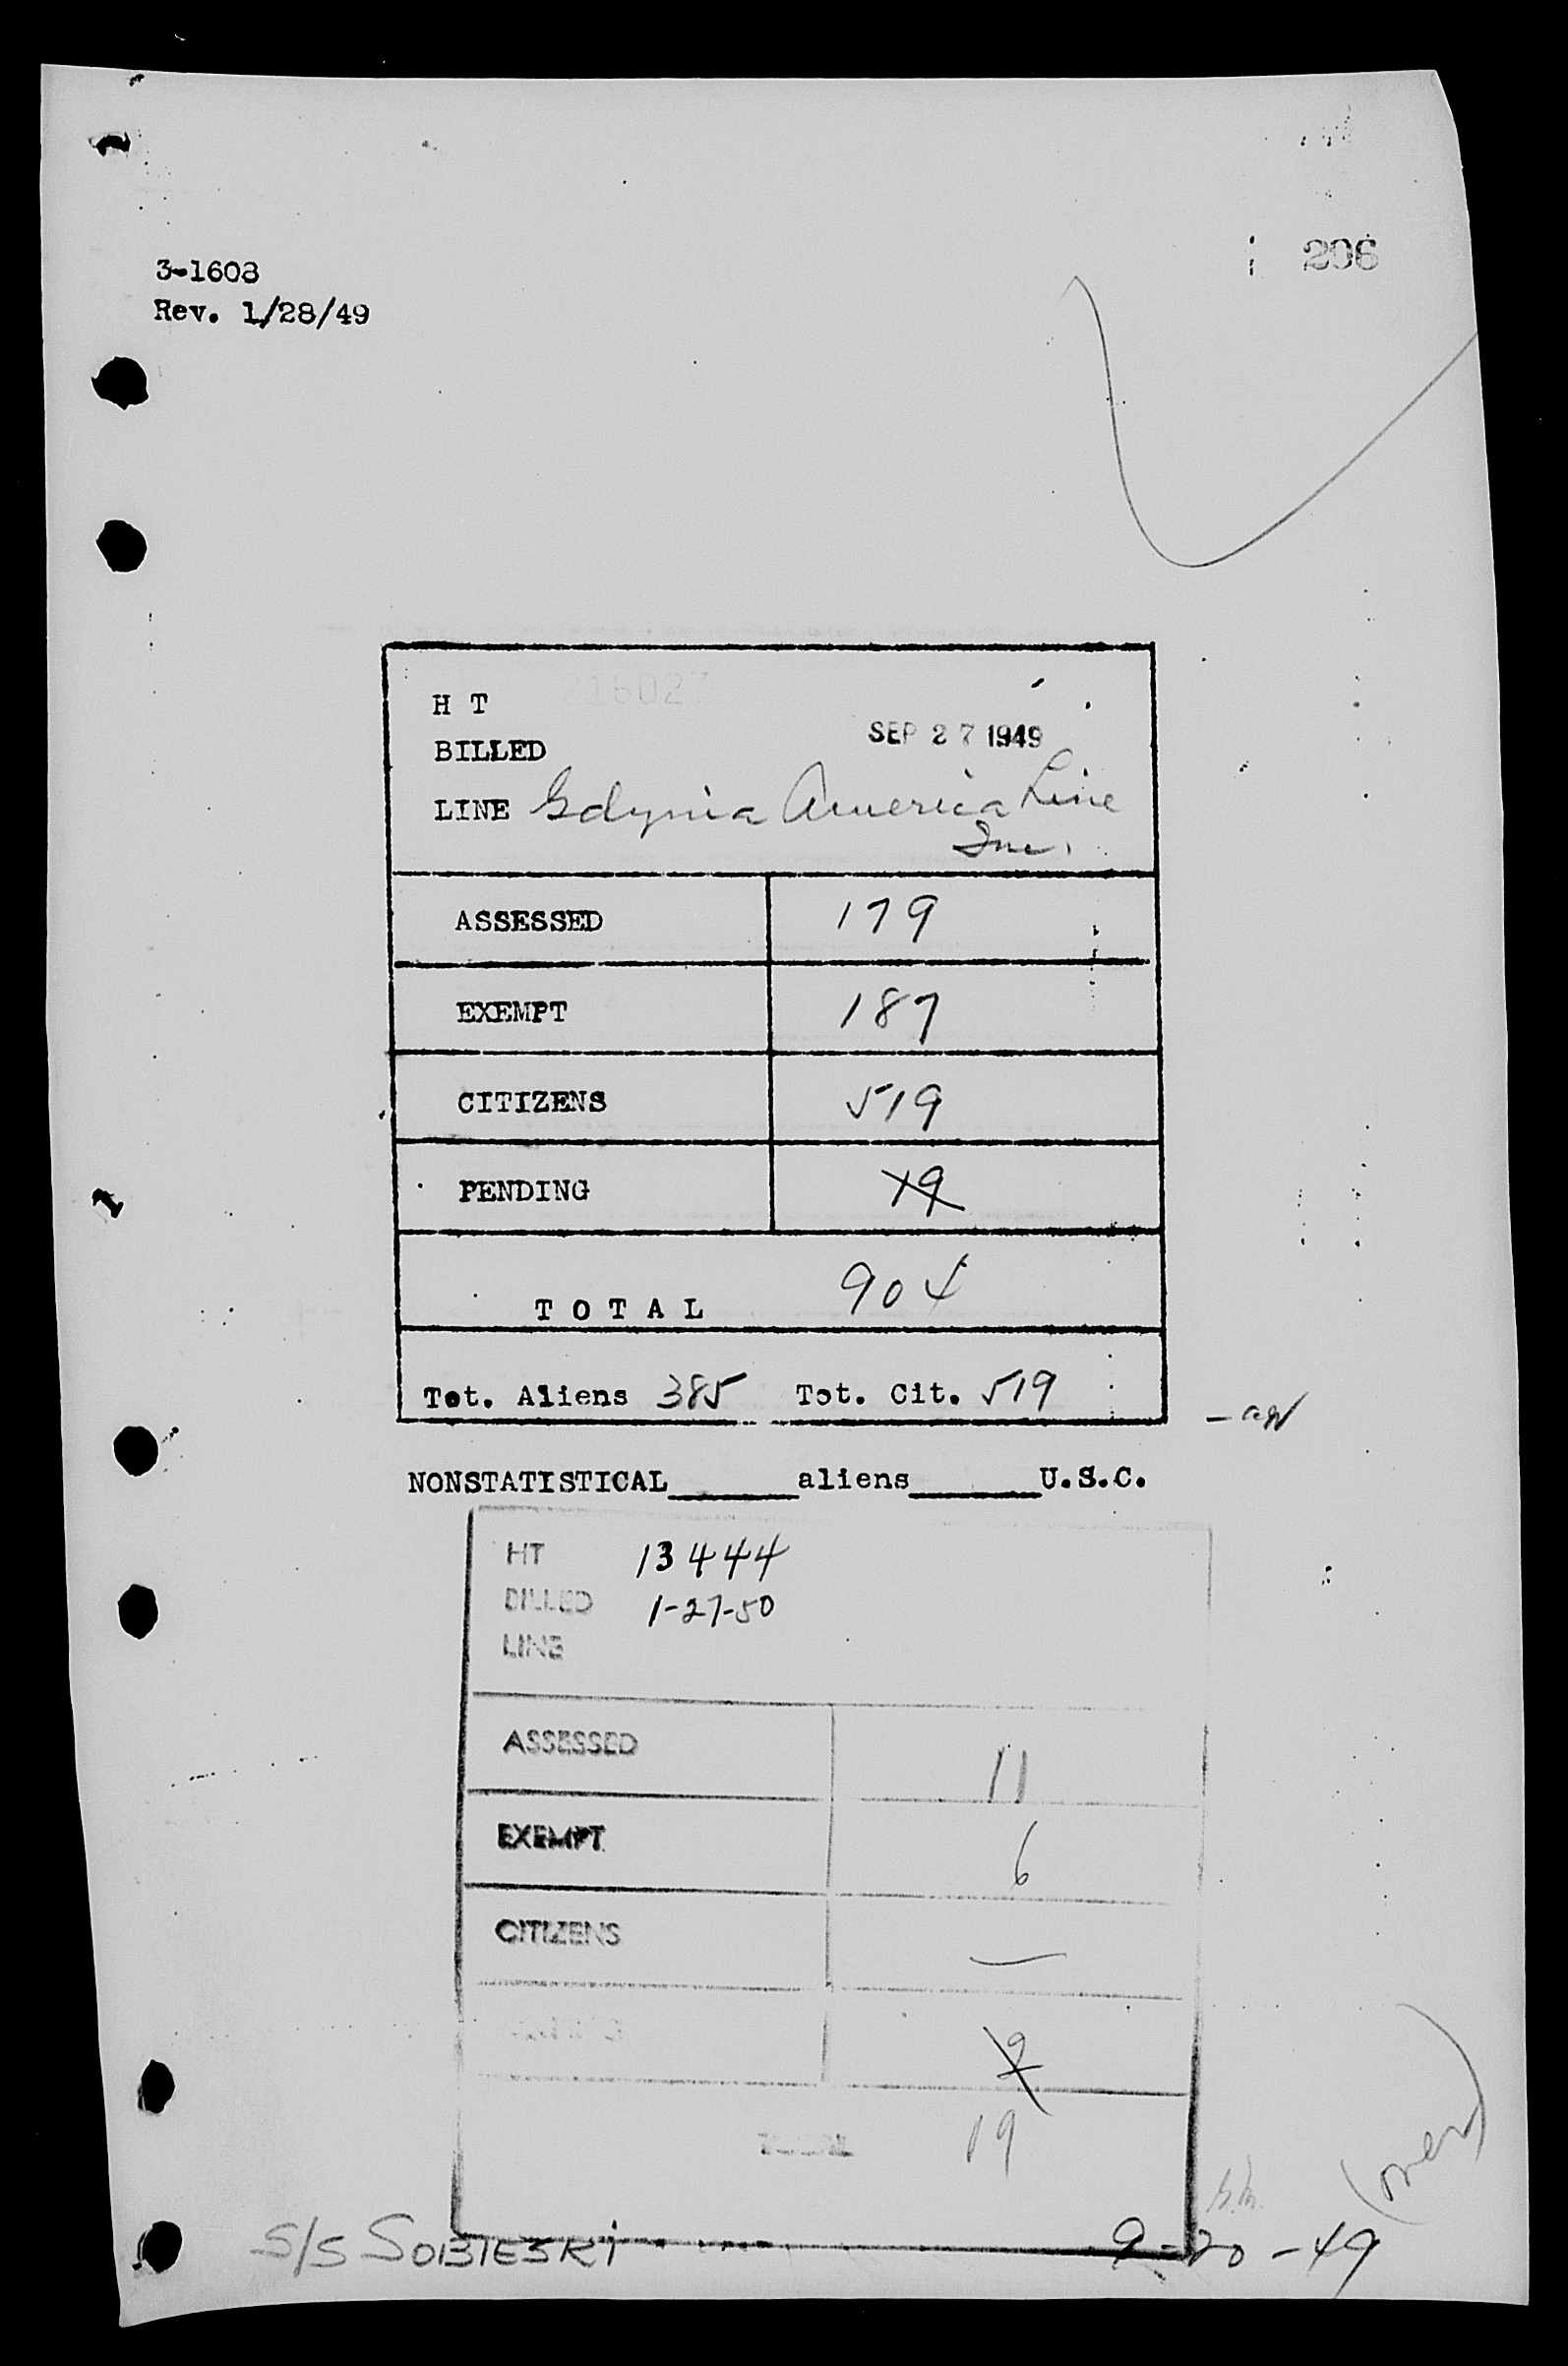 206
3-1608
Rev. 1/28/49
H T
BILLED SEP 27 1949
LINE Gdynia America Line
Inc.
ASSESSED 179
EXEMPT 187
CITIZENS 519
PENDING 19
TOTAL 904
Tot. Aliens 385 Tot. Cit. 519
NONSTATISTICAL______aliens______U.S.C.
HT 13444
BILLED 1-27-50
LINE
ASSESSED 11
EXEMPT 6
CITIZENS —
2
TOTAL 19
(over)
S/S SOBIESKI 9-20-49